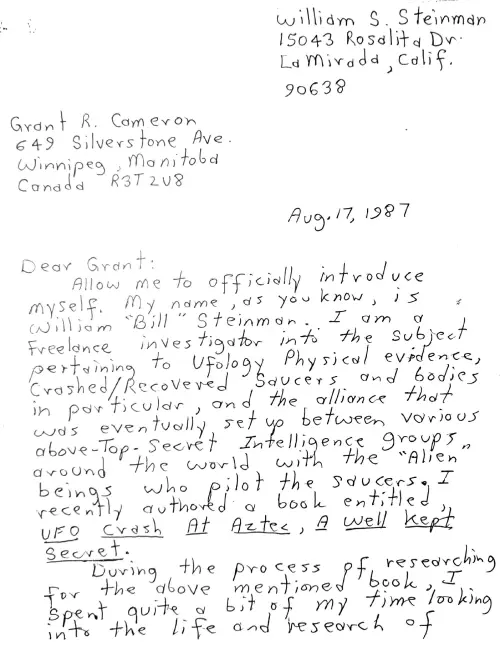 William S. Steinman
15043 Rosalita Dr.
La Mirada, Calif.
90638
Grant R. Cameron
649 Silverstone Ave.
Winnipeg, Manitoba
Canada R3T 2V8
Aug. 17, 1987
Dear Grant:
Allow me to officially introduce
myself. My name, as you know, is
William "Bill" Steinman. I am a
Freelance investigator into the subject
pertaining to Ufology Physical evidence,
Crashed/Recovered Saucers and bodies
in particular, and the alliance that
was eventually set up between various
above-Top-Secret Intelligence groups
around the world with the "Alien"
beings who pilot the saucers. I
recently authored a book entitled,
UFO Crash At Aztec, A Well Kept
Secret.
During the process of researching
for the above mentioned book, I
spent quite a bit of my time looking
into the life and research of